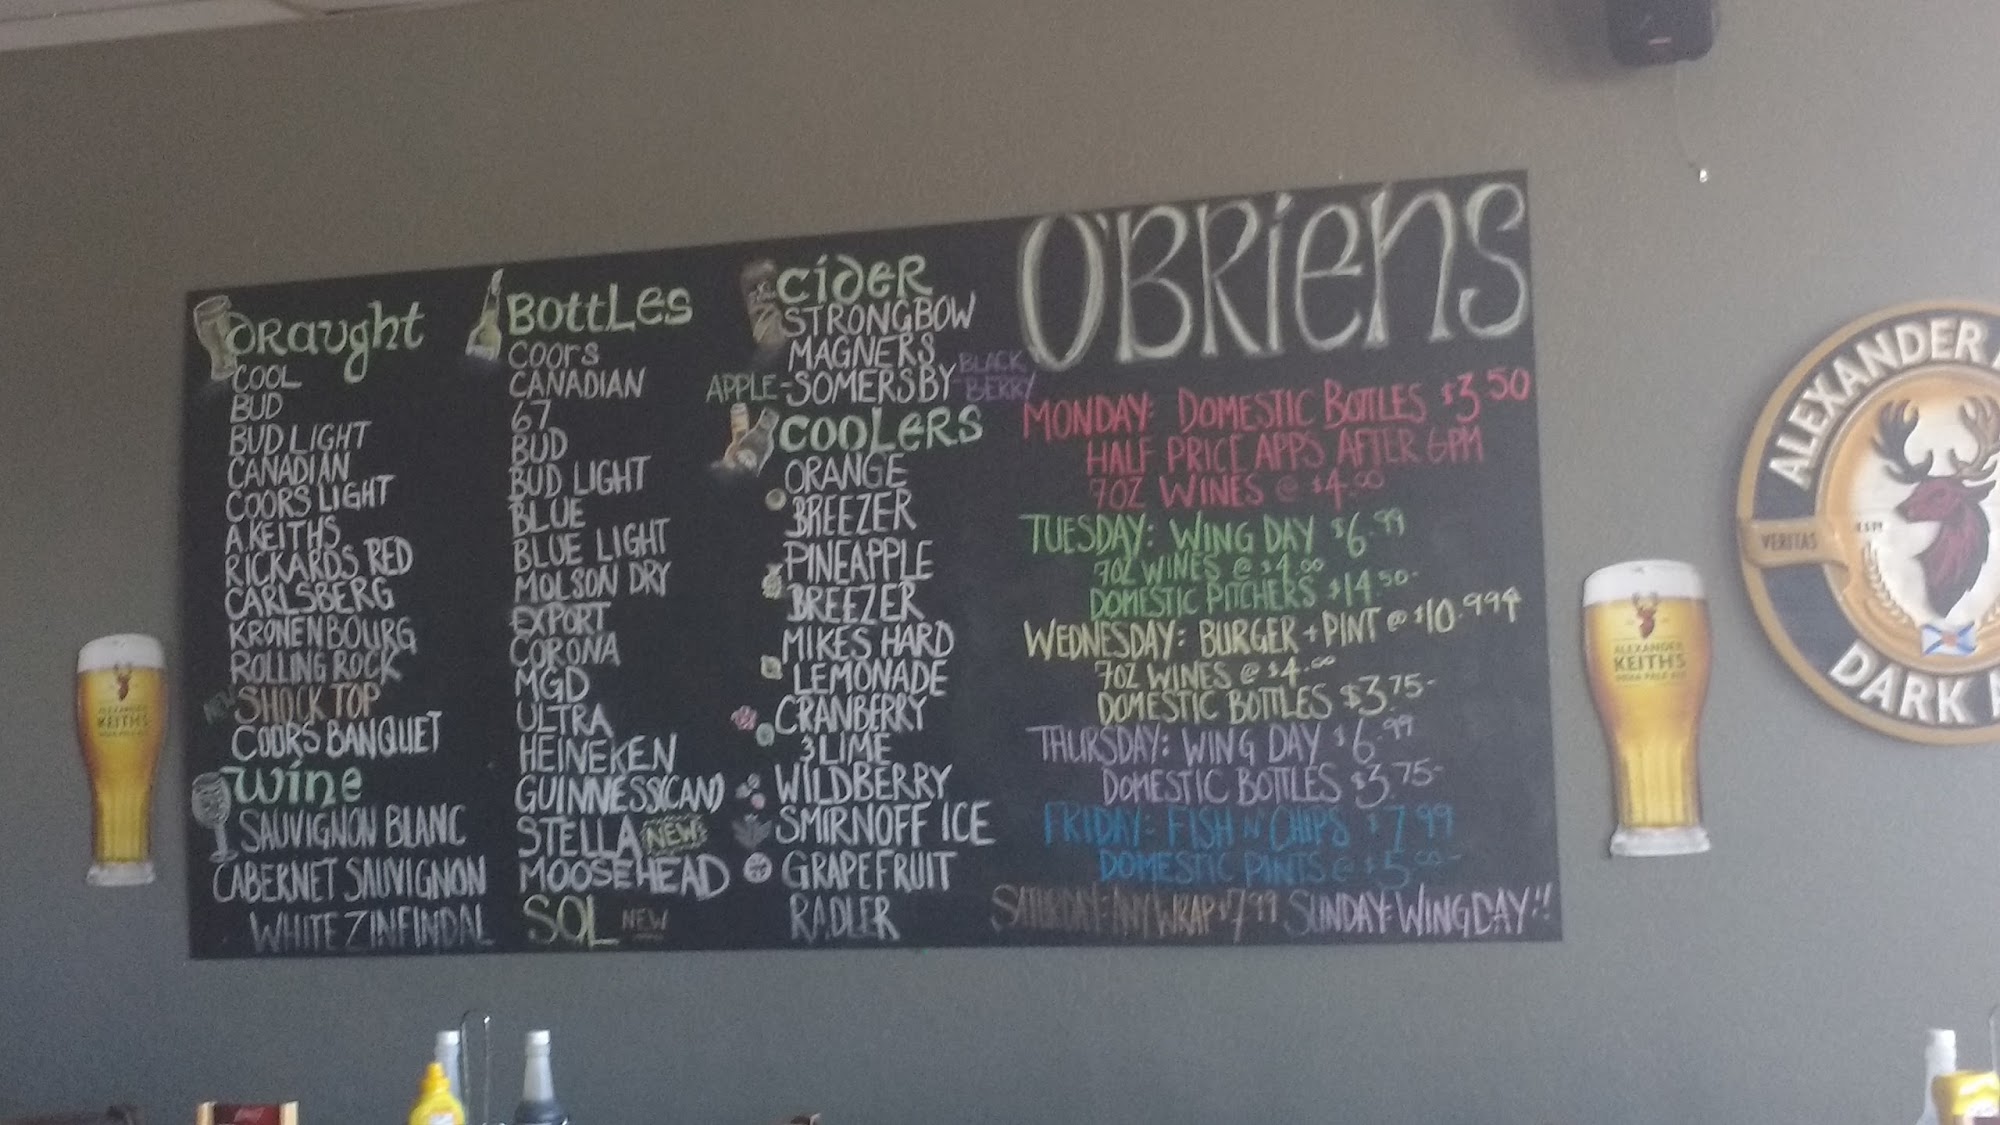 DRAUGHT
COOL
BUD
BUD LIGHT
CANADIAN
COORS LIGHT
A.KEITHS
RICKARDS RED
CARLSBERG
KRONENBOURG
ROLLING ROCK
NEW SHOCK TOP
COORS BANQUET
WINE
SAUVIGNON BLANC
CABERNET SAUVIGNON
WHITE ZINFINDAL
BOTTLES
COORS
CANADIAN
67
BUD
BUD LIGHT
BLUE
BLUE LIGHT
MOLSON DRY
EXPORT
CORONA
MGD
ULTRA
HEINEKEN
GUINNESS(CAN)
STELLA NEW
MOOSEHEAD
SOL NEW
CIDER
STRONGBOW
MAGNERS
APPLE-SOMERSBY-BLACK BERRY
COOLERS
ORANGE
BREEZER
PINEAPPLE
BREEZER
MIKES HARD
LEMONADE
CRANBERRY
& LIME
WILDBERRY
SMIRNOFF ICE
GRAPEFRUIT
RADLER
O'BRIENS
MONDAY: DOMESTIC BOTTLES $3.50
HALF PRICE APPS AFTER 6PM
7OZ WINES @ $4.00
TUESDAY: WING DAY $6.99
7OZ WINES @ $4.00
DOMESTIC PITCHERS $14.50-
WEDNESDAY: BURGER + PINT @ $10.99¢
7OZ WINES @ $4.00
DOMESTIC BOTTLES $3.75-
THURSDAY: WING DAY $6.99
DOMESTIC BOTTLES $3.75-
FRIDAY: FISH N' CHIPS $7.99
DOMESTIC PINTS @ $5.00-
SATURDAY: ANY WRAP $7.99 SUNDAY: WING DAY!!
ALEXANDER
KEITH'S
INDIA PALE ALE
ALEXANDER
KEITH'S
INDIA PALE ALE
ALEXANDER
VERITAS
ESTD
DARK